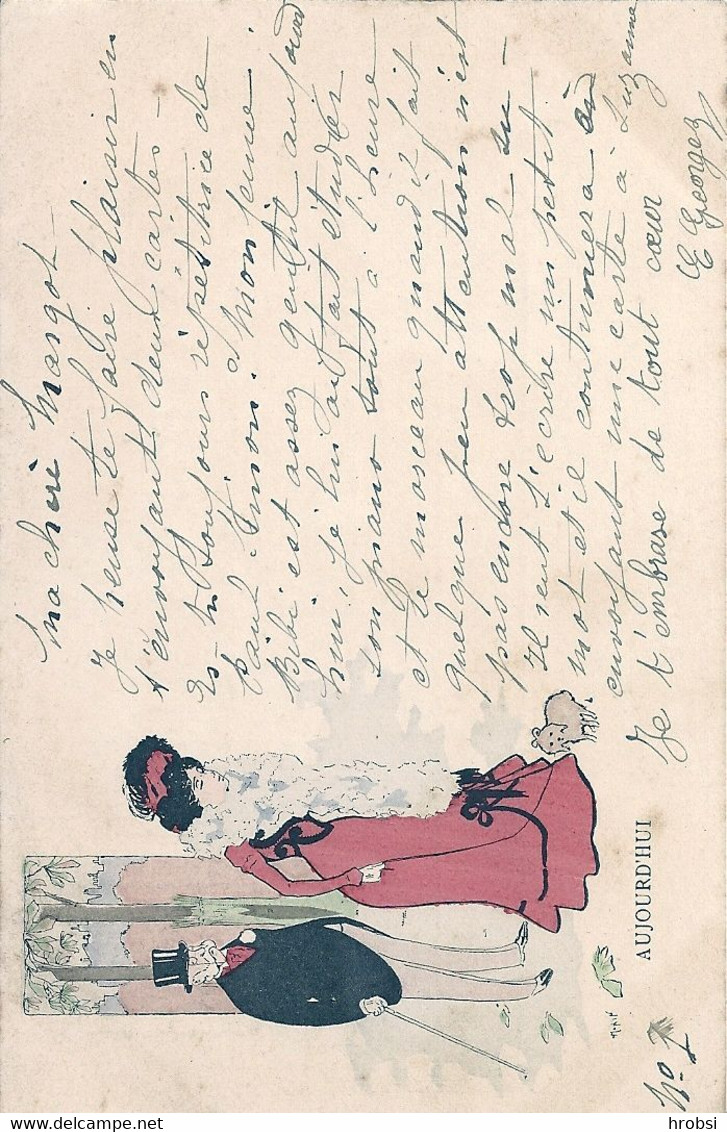 Ma chère Margot -
Je pense te faire plaisir en
t'envoyant deux cartes -
Es tu toujours répétitrice de
Paul-Simon. Mon jeune
Bébé est assez gentil aujourd
hui. Je lui ai fait étudier
son piano tout à l'heure
et le morceau quand il fait
quelque peu attention n'est
pas encore trop mal su -
Il veut t'écrire un petit
mot et il continuera en
envoyant une carte à Suzanne
Je t'embrasse de tout cœur
E Georges
AUJOURD'HUI
No 1
hrobsi
delcampe.net